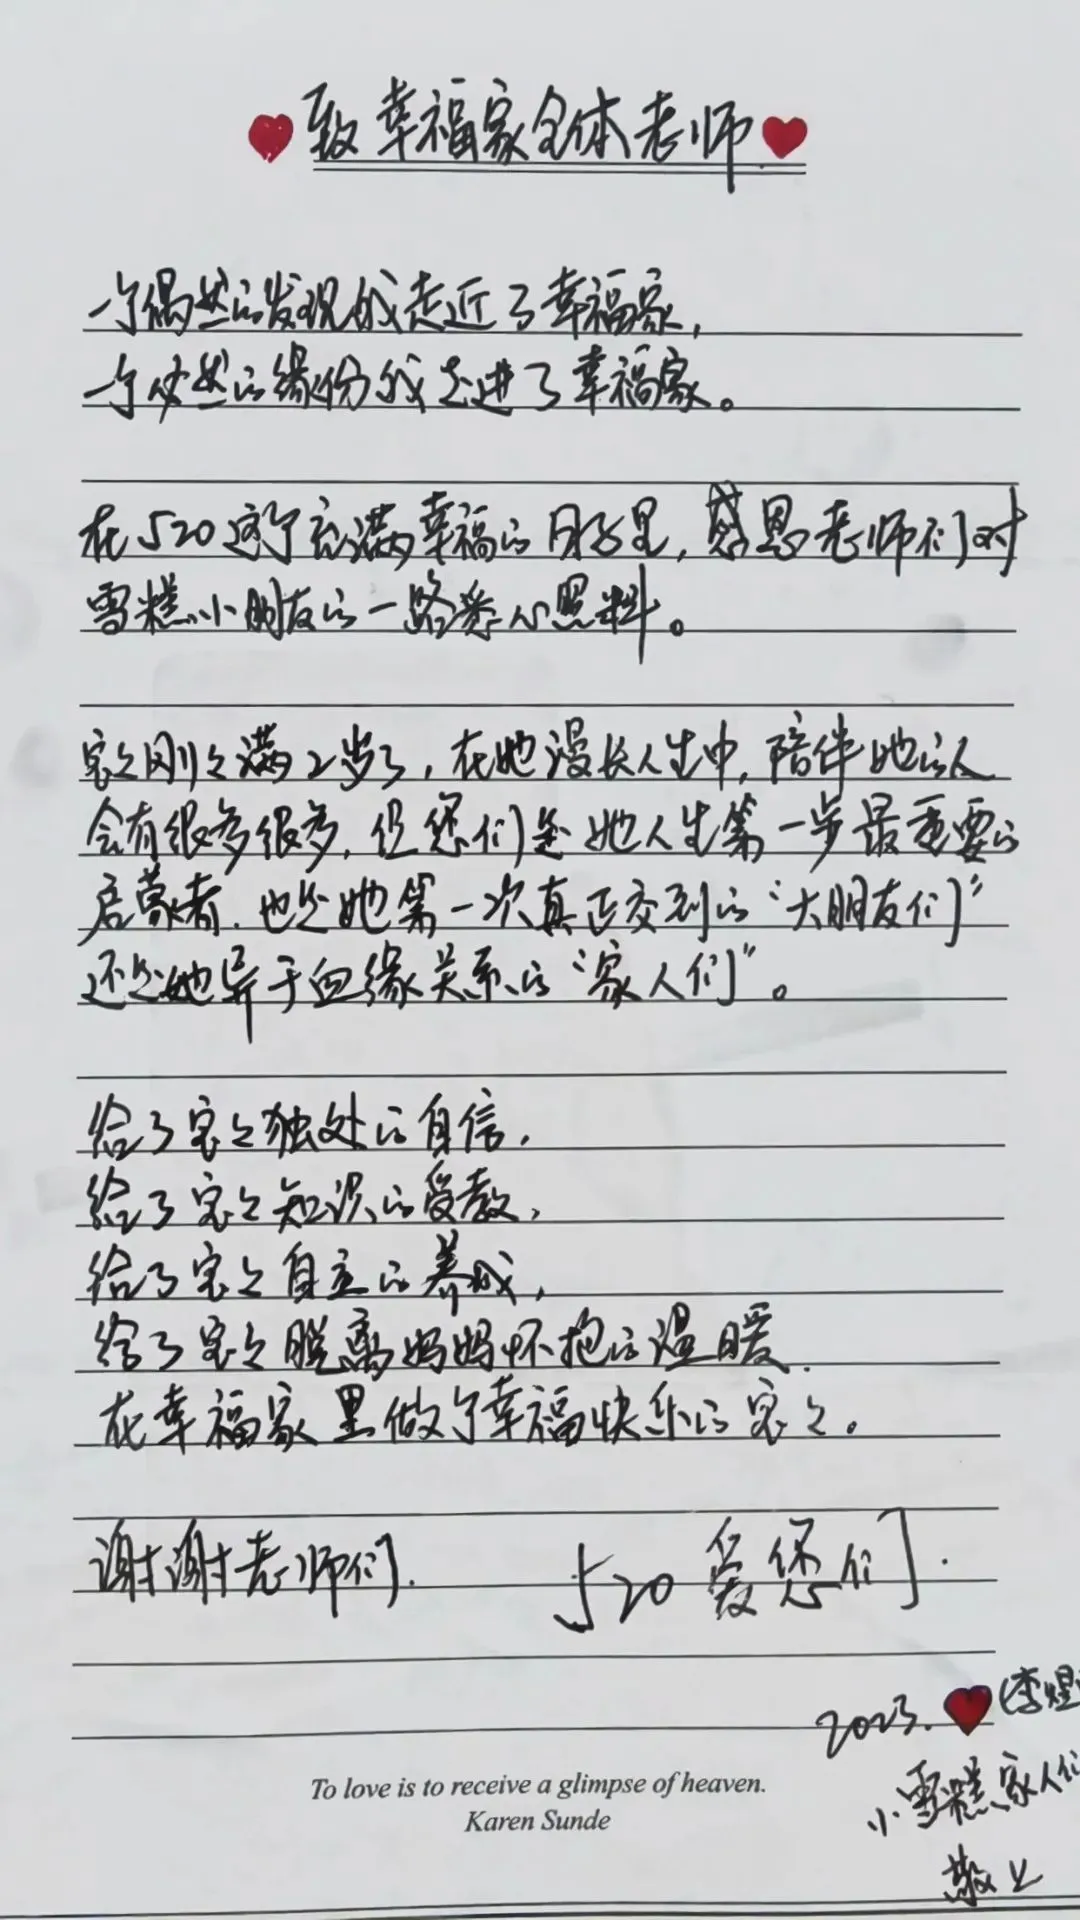 致幸福家全体老师
一个偶然的发现我走近了幸福家,
一个必然的缘份我走进了幸福家。
在520这个充满幸福的日子里,感恩老师们对
雪糕小朋友的一路悉心照料。
宝宝刚刚满2岁了,在她漫长人生中,陪伴她的人
会有很多很多,但您们是她人生第一步最重要的
启蒙者.也是她第一次真正交到的“大朋友们”
还是她异于血缘关系的“家人们”。
给了宝宝独处的自信,
给了宝宝知识的受教,
给了宝宝自立的养成,
给了宝宝脱离妈妈怀抱的温暖.
在幸福家里做了幸福快乐的宝宝。
谢谢老师们.
520爱您们.
2023. (李煜
小雪糕家人们
敬上
To love is to receive a glimpse of heaven.
Karen Sunde